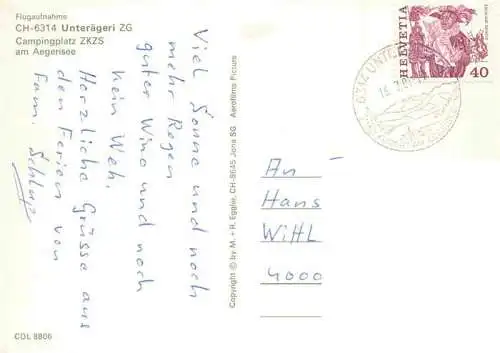 Flugaufnahme
CH-6314 Unterägeri ZG
Campingplatz ZKZS
am Aegerisee
Viel Sonne und noch
mehr Regen
guter Wind und noch
kein Weh.
Herzliche Grüsse aus
den Ferien von
Fam.
Copyright © by M. + R. Eggler, CH-8645 Jona SG Aerofilms Picture
HELVETIA
40
6314 UNTER
15.7.8
An
Hans
WiHL
4000
COL 8806